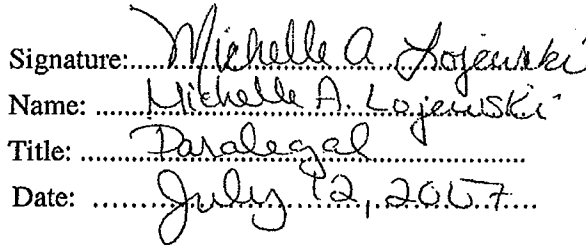 Signature: Michelle A Lojewski
Name: Michelle A. Lojewski
Title: Paralegal
Date: July 12, 2007